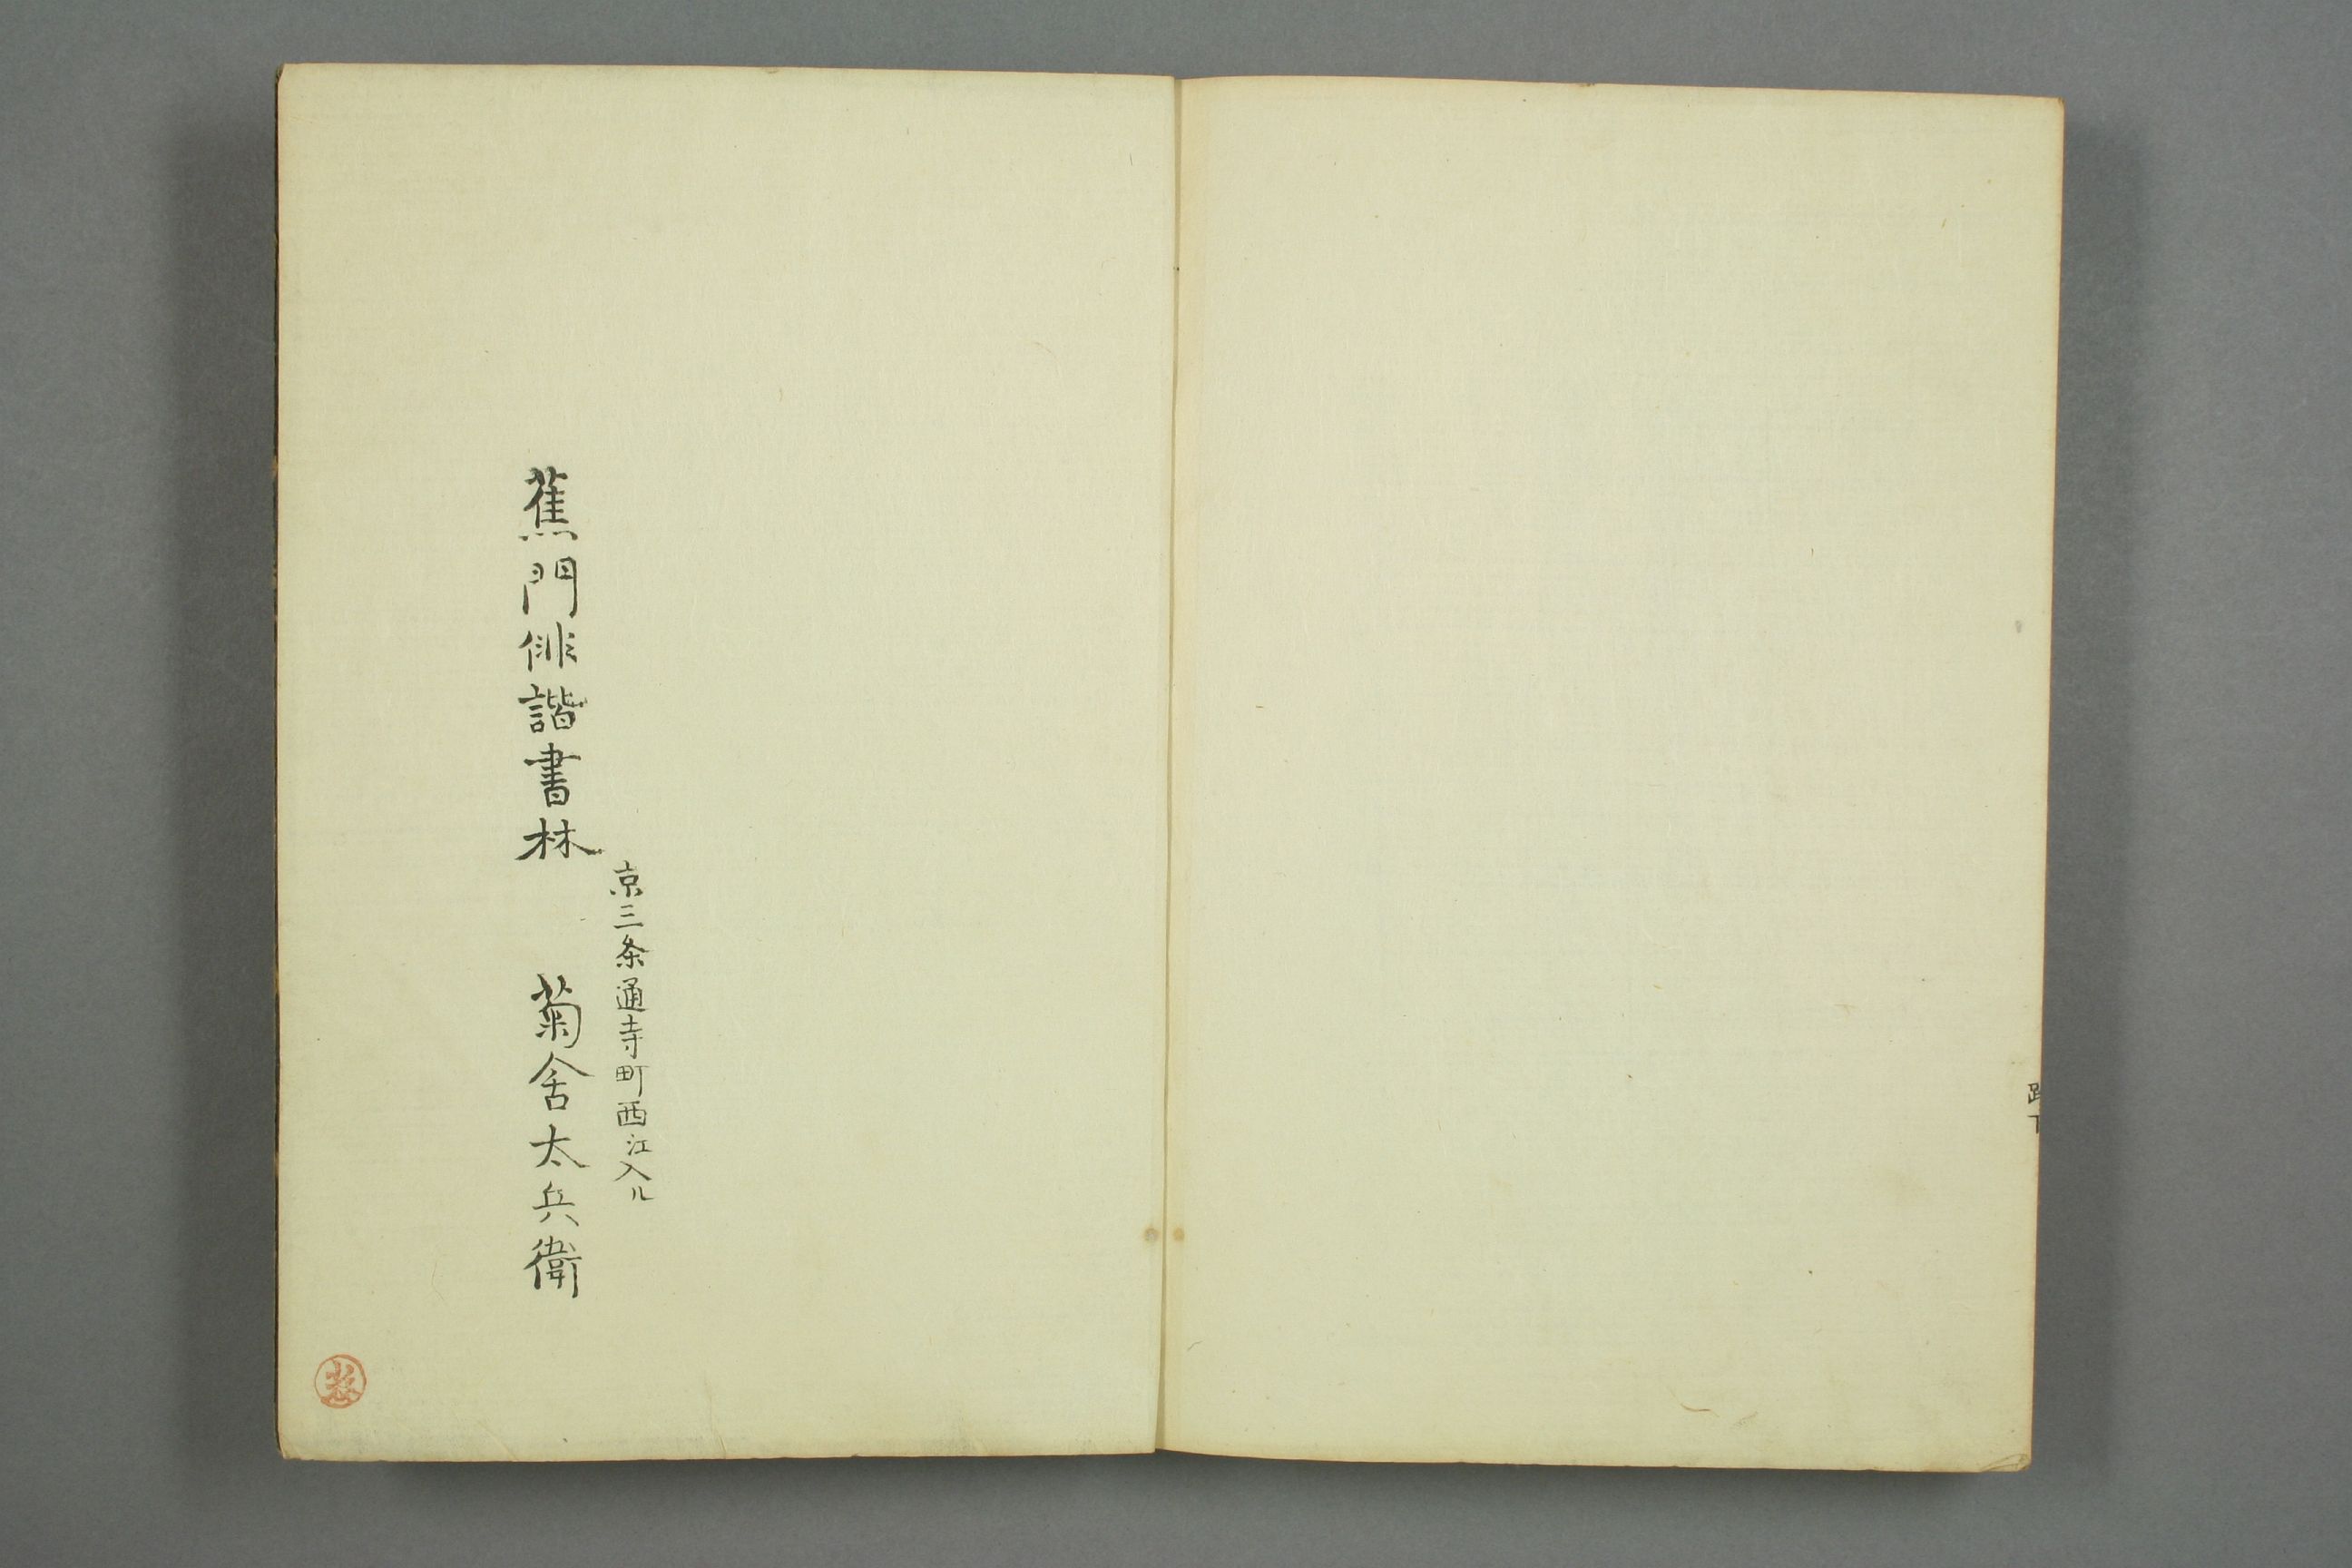 京三条通寺町西江入ル
蕉門俳諧書林　菊舎太兵衛